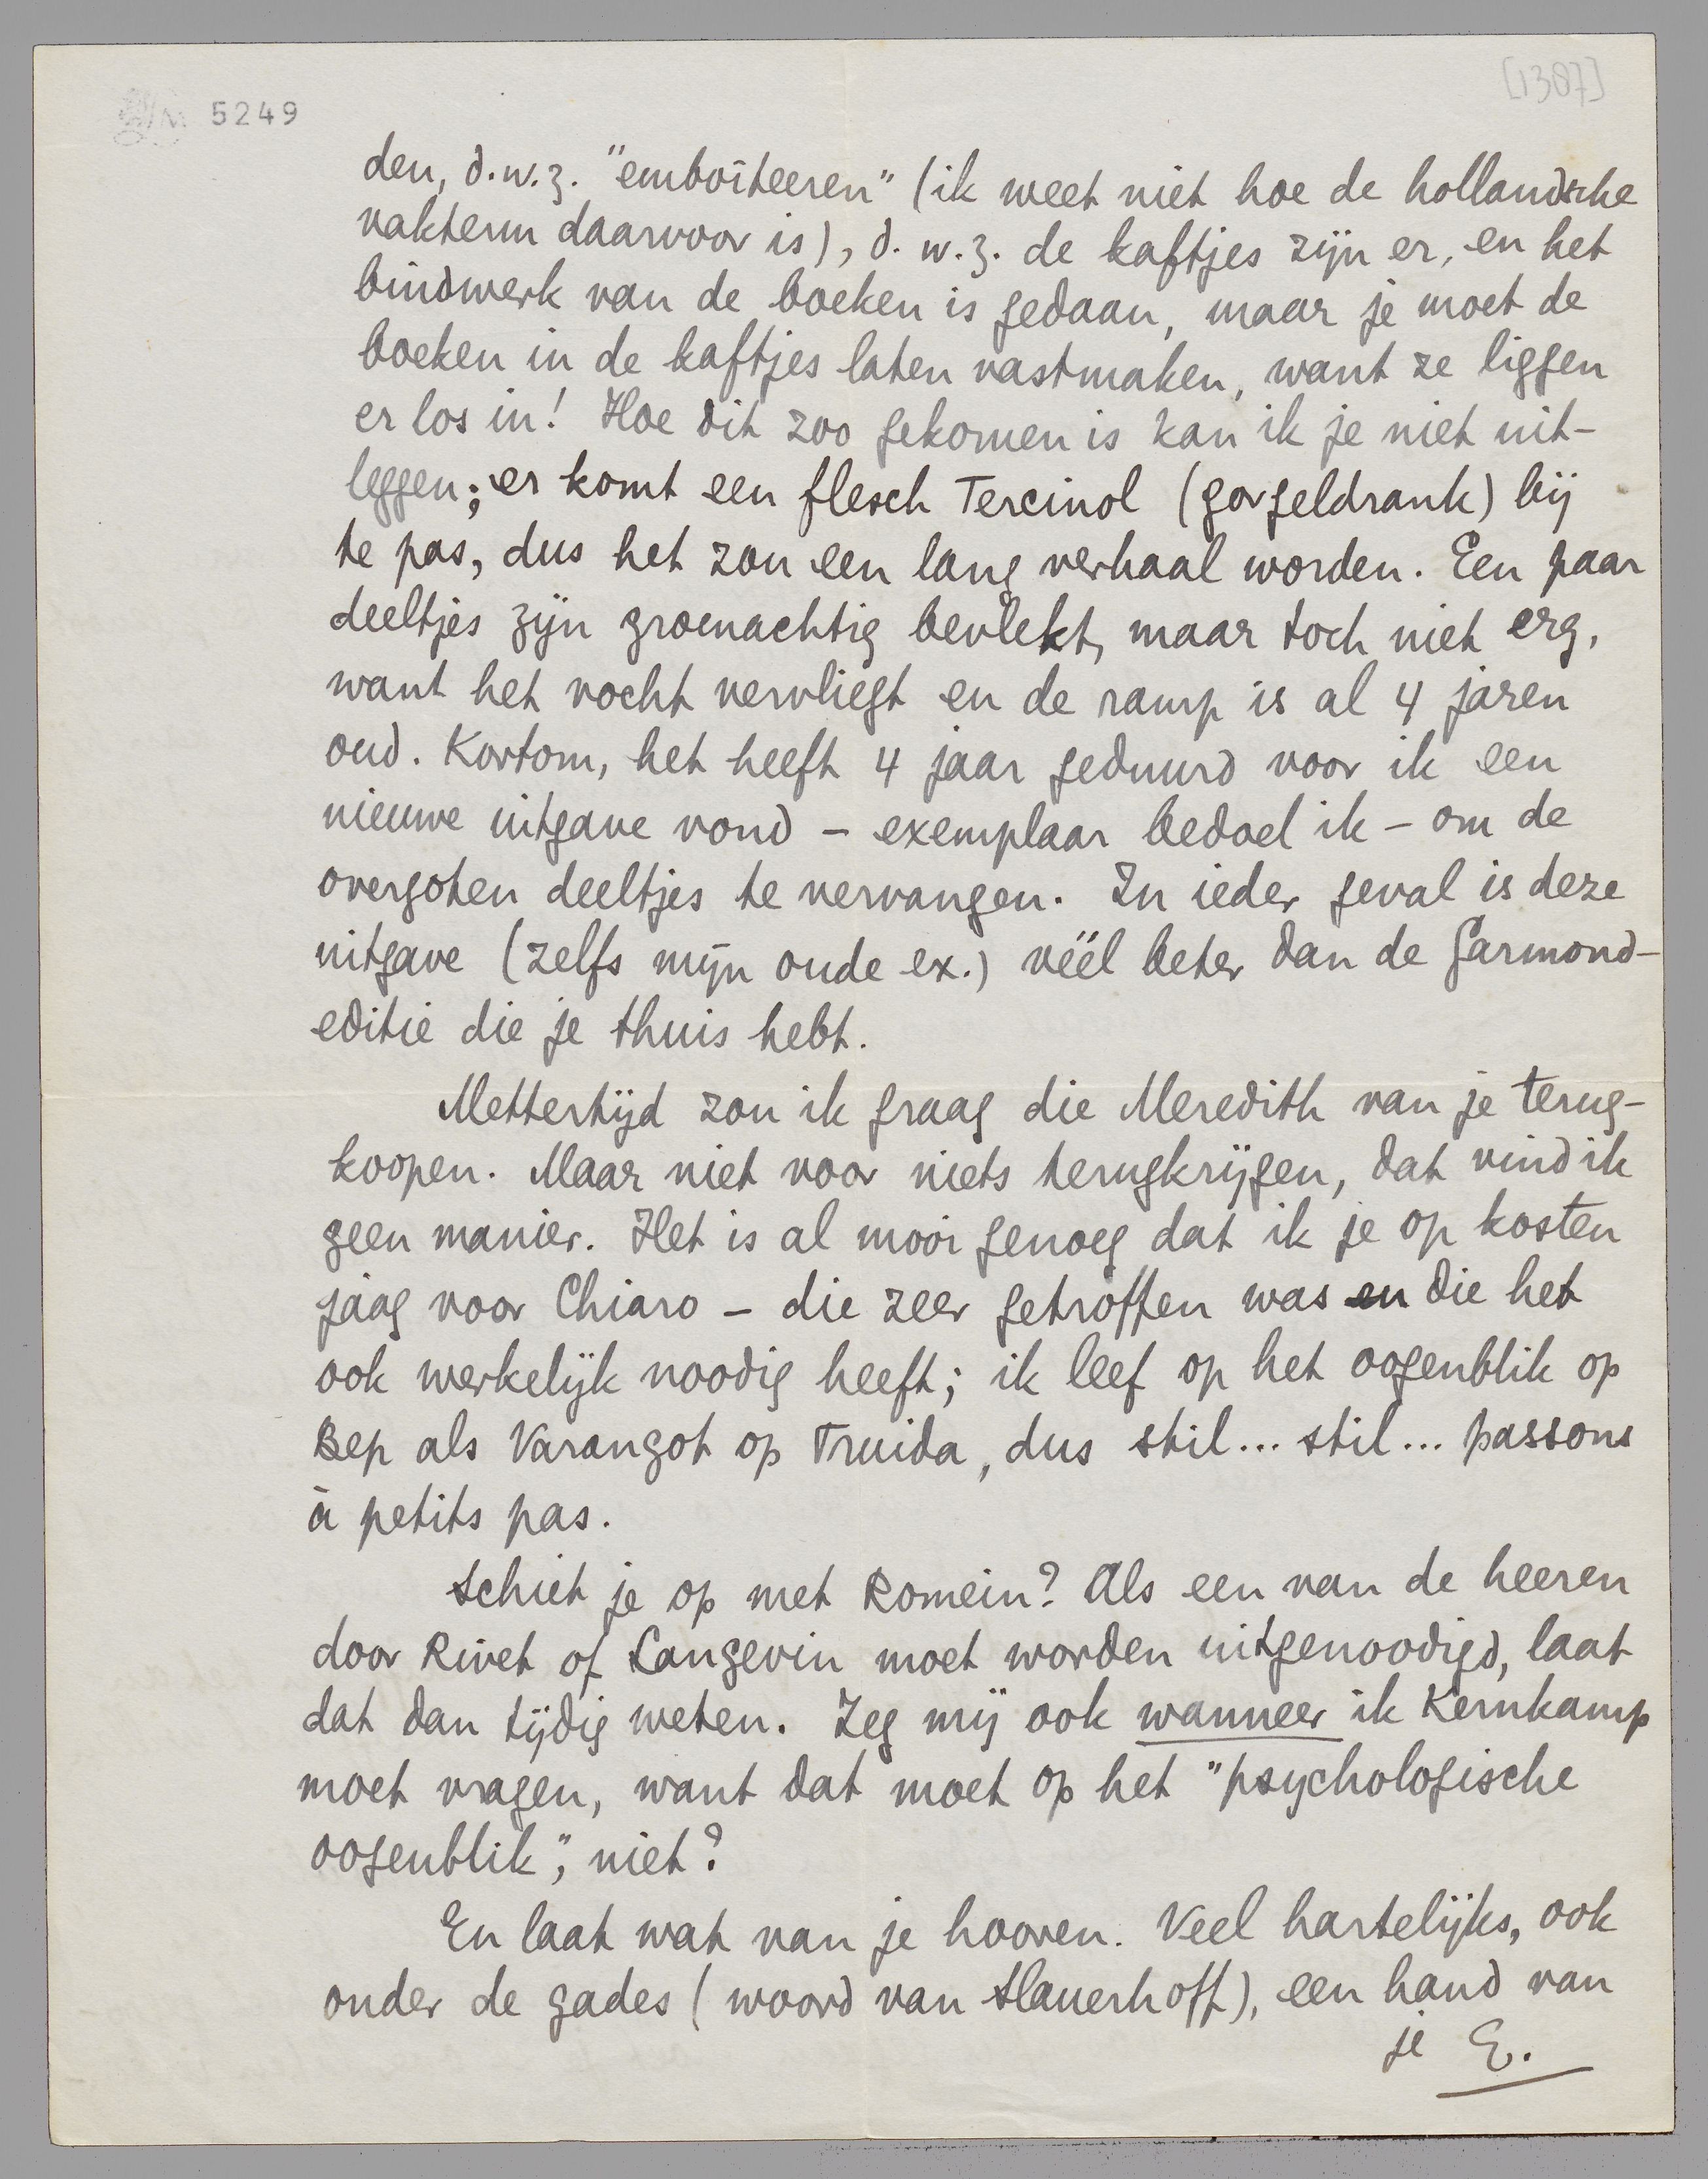 5249
[1387]
den, d.w.z. "emboîteeren" (ik weet niet hoe de hollandsche
vakterm daarvoor is), d.w.z. de kaftjes zijn er, en het
bindwerk van de boeken is gedaan, maar je moet de
boeken in de kaftjes laten vastmaken, want ze liggen
er los in! Hoe dit zoo gekomen is kan ik je niet uit-
leggen; er komt een flesch Tercinol (gorgeldrank) bij
te pas, dus het zou een lang verhaal worden. Een paar
deeltjes zijn groenachtig bevlekt, maar toch niet erg,
want het vocht vervliegt en de ramp is al 4 jaren
oud. Kortom, het heeft 4 jaar geduurd voor ik een
nieuwe uitgave vond – exemplaar bedoel ik – om de
overgoten deeltjes te vervangen. In ieder geval is deze
uitgave (zelfs mijn oude ex.) véél beter dan de Garmond-
editie die je thuis hebt.
Mettertijd zou ik graag die Meredith van je terug-
koopen. Maar niet voor niets terugkrijgen, dat vind ik
geen manier. Het is al mooi genoeg dat ik je op kosten
jaag voor Chiaro – die zeer getroffen was en die het
ook werkelijk noodig heeft; ik leef op het oogenblik op
Bep als Varangot op Truida, dus stil... stil... passons
à petits pas.
Schiet je op met Romein? Als een van de heeren
door Rivet of Langevin moet worden uitgenoodigd, laat
dat dan tijdig weten. Zeg mij ook wanneer ik Kernkamp
moet vragen, want dat moet op het "psychologische
oogenblik", niet?
En laat wat van je hooren. Veel hartelijks, ook
onder de gades (woord van Slauerhoff), een hand van
je E.